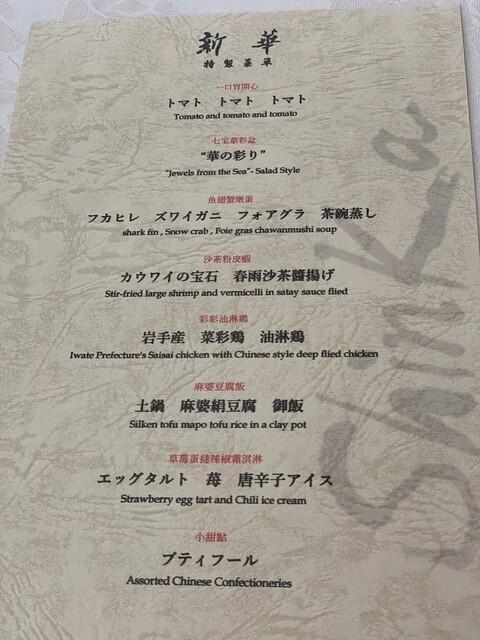 新華
特製菜単
一口胃開心
トマト トマト トマト
Tomato and tomato and tomato
七宝華彩盆
“華の彩り”
“Jewels from the Sea”- Salad Style
魚翅蟹燉蛋
フカヒレ ズワイガニ フォアグラ 茶碗蒸し
shark fin , Snow crab , Foie gras chawanmushi soup
沙茶粉皮蝦
カウワイの宝石 春雨沙茶醬揚げ
Stir-fried large shrimp and vermicelli in satay sauce flied
彩彩油淋鶏
岩手産 菜彩鶏 油淋鶏
Iwate Prefecture's Saisai chicken with Chinese style deep flied chicken
麻婆豆腐飯
土鍋 麻婆絹豆腐 御飯
Silken tofu mapo tofu rice in a clay pot
草莓蛋撻辣椒霜淇淋
エッグタルト 苺 唐辛子アイス
Strawberry egg tart and Chili ice cream
小甜點
プティフール
Assorted Chinese Confectioneries